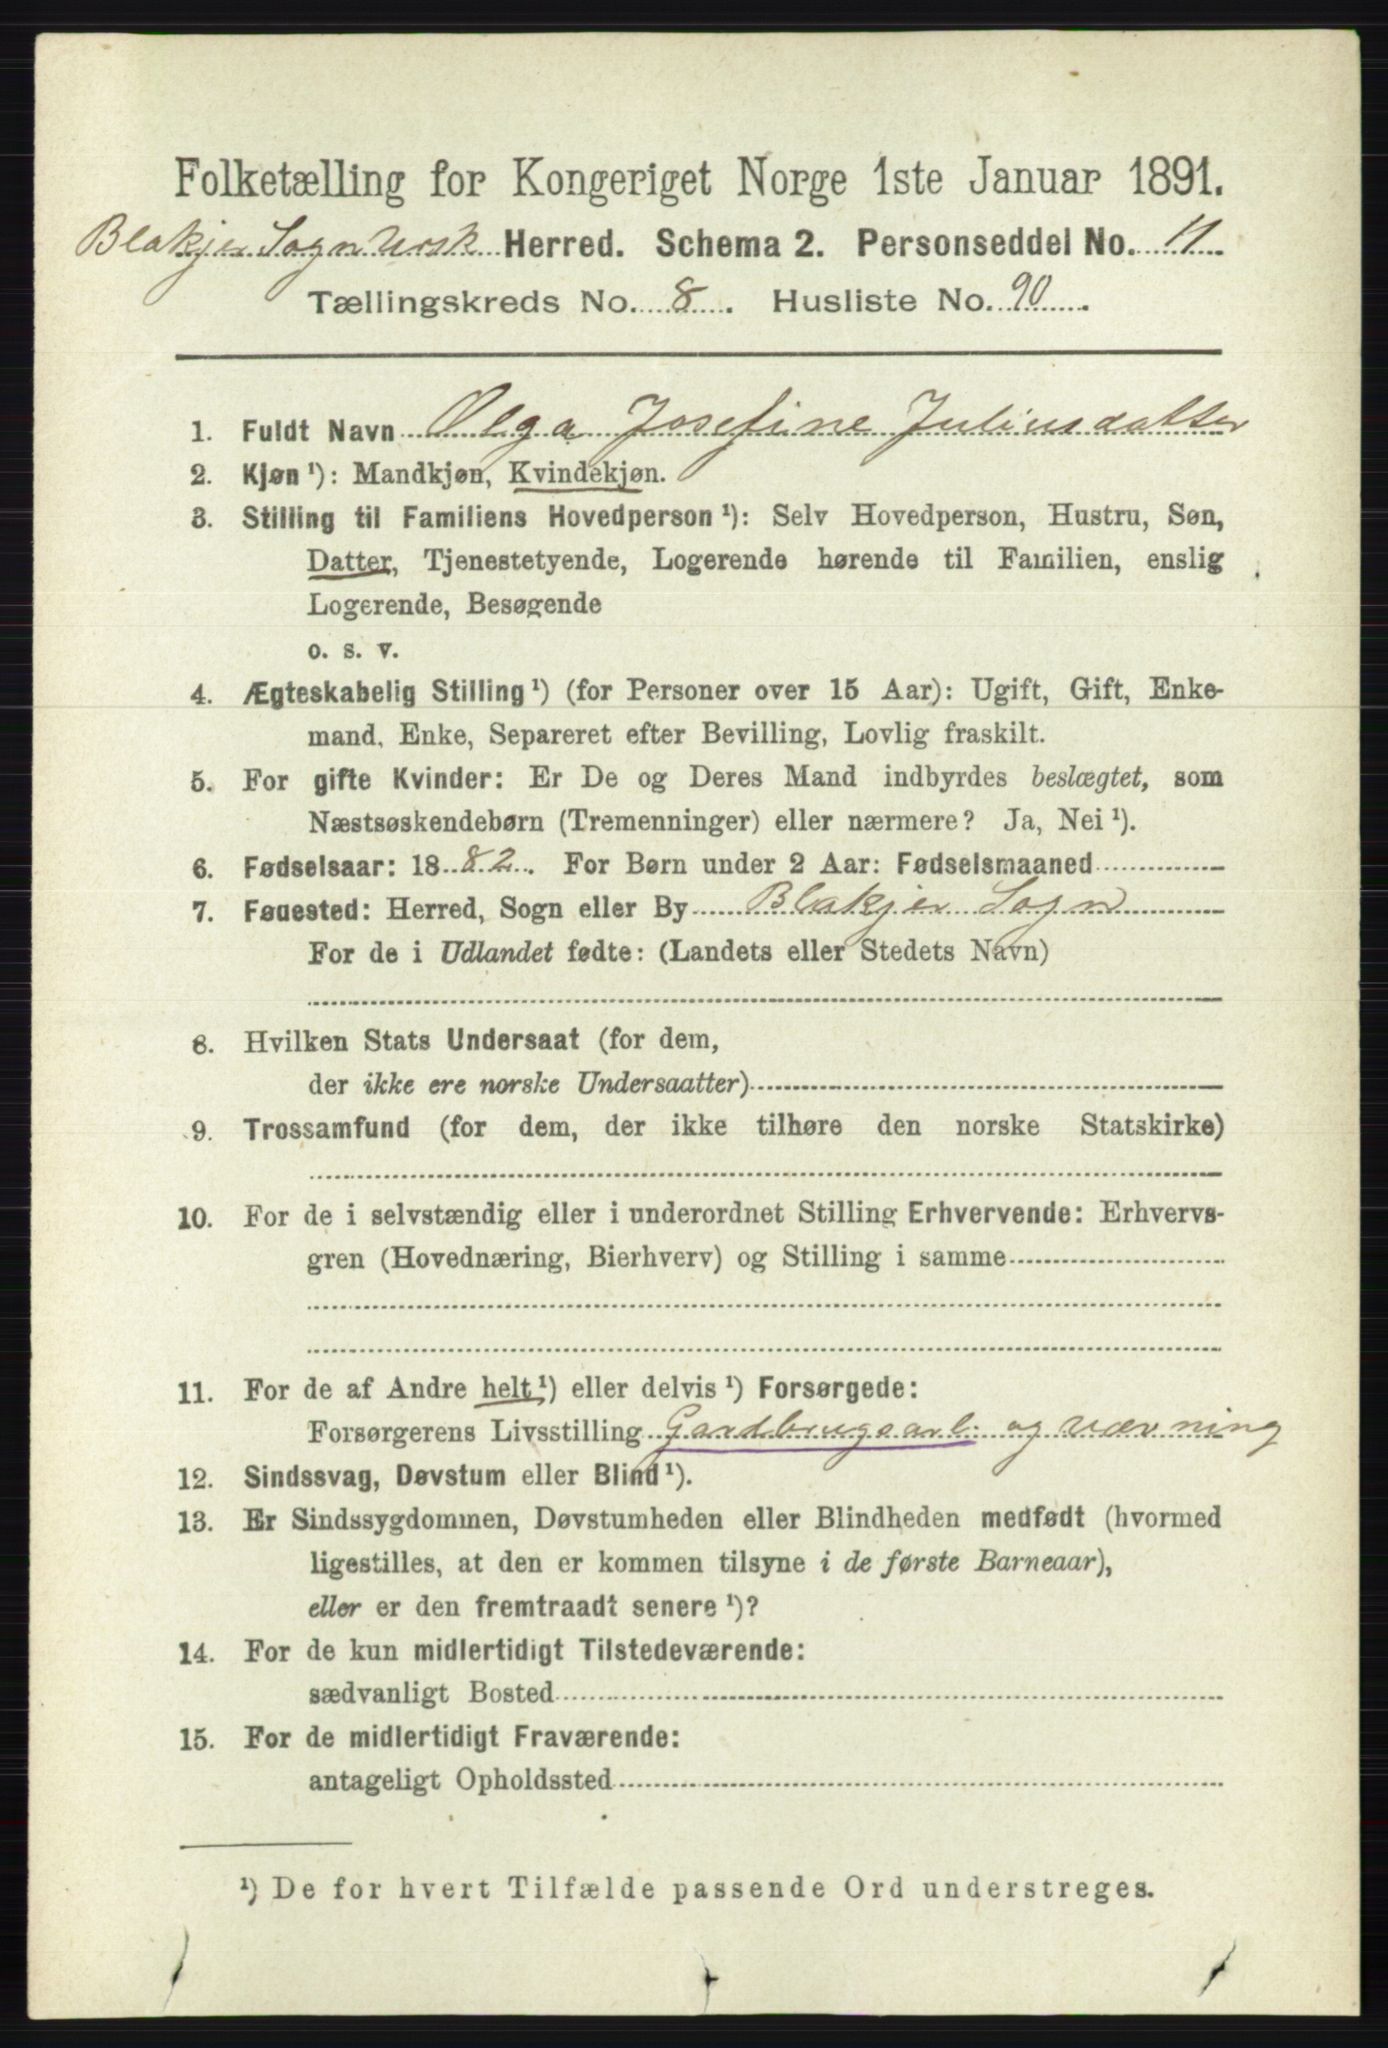 Folketælling for Kongeriget Norge 1ste Januar 1891.
Blakjer Sogn Ursk Herred. Schema 2. Personseddel No. 11.
Tællingskreds No. 8. Husliste No. 90.
1. Fuldt Navn Olga Josefine Juliusdatter
2. Kjøn ¹): Mandkjøn, Kvindekjøn.
3. Stilling til Familiens Hovedperson ¹): Selv Hovedperson, Hustru, Søn,
Datter, Tjenestetyende, Logerende hørende til Familien, enslig
Logerende, Besøgende
o. s. v.
4. Ægteskabelig Stilling ¹) (for Personer over 15 Aar): Ugift, Gift, Enke-
mand, Enke, Separeret efter Bevilling, Lovlig fraskilt.
5. For gifte Kvinder: Er De og Deres Mand indbyrdes beslægtet, som
Næstsøskendebørn (Tremenninger) eller nærmere? Ja, Nei ¹).
6. Fødselsaar: 1882. For Børn under 2 Aar: Fødselsmaaned
7. Fødested: Herred, Sogn eller By Blakjer Sogn
For de i Udlandet fødte: (Landets eller Stedets Navn)
8. Hvilken Stats Undersaat (for dem,
der ikke ere norske Undersaatter)
9. Trossamfund (for dem, der ikke tilhøre den norske Statskirke)
10. For de i selvstændig eller i underordnet Stilling Erhvervende: Erhvervs-
gren (Hovednæring, Bierhverv) og Stilling i samme
11. For de af Andre helt ¹) eller delvis ¹) Forsørgede:
Forsørgerens Livsstilling Gardbrugsarb. og vævning
12. Sindssvag, Døvstum eller Blind ¹).
13. Er Sindssygdommen, Døvstumheden eller Blindheden medfødt (hvormed
ligestilles, at den er kommen tilsyne i de første Barneaar),
eller er den fremtraadt senere ¹)?
14. For de kun midlertidigt Tilstedeværende:
sædvanligt Bosted
15. For de midlertidigt Fraværende:
antageligt Opholdssted
¹) De for hvert Tilfælde passende Ord understreges.